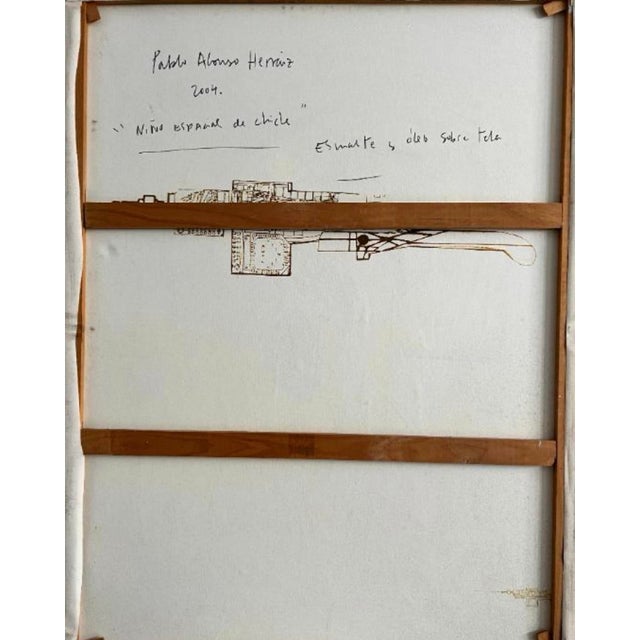 Pablo Alonso Herráiz
2004.
"Niño español de chicle"
Esmalte y óleo sobre tela